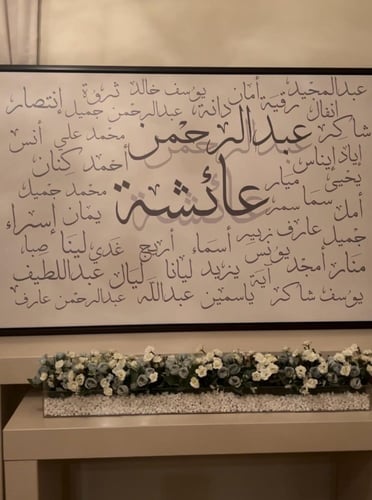 عبدالمجيد أمان يوسف خالد ثروة إنتصار
انفال رقية دانة عبدالرحمن جميل
شاكر عبدالرحمن محمد علي أنس
إياد إيناس أحمد كنان
يحيى ميار عائشة محمد جميل
أمل سما سمر يمان إسراء
جميل عارف زبير أسماء أريج غدي لينا صبا
منار أمجد يونس آية يزيد ليانا ليال عبداللطيف
يوسف شاكر ياسمين عبدالله عبدالرحمن عارف